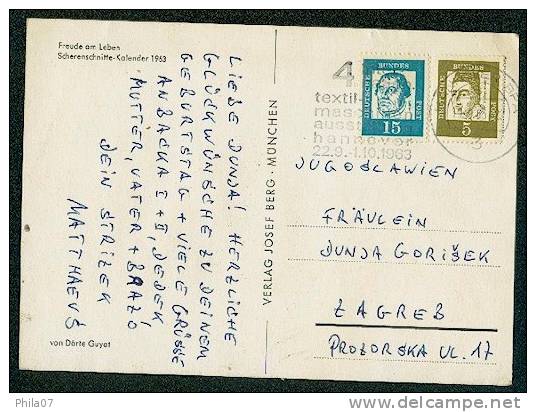 Freude am Leben
Scherenschnitte-Kalender 1963
LIEBE DUNJA! HERZLICHE
GLÜCKWÜNSCHE ZU DEINEM
GEBURTSTAG + VIELE GRÜSSE
AN BACKA I + II, DEDEK
MUTTER, VATER + BRAZO!
DEIN STRIZEK
MATTHAEUS
von Dörte Guyot
VERLAG JOSEF BERG · MÜNCHEN
DEUTSCHE BUNDES POST
15
DEUTSCHE BUNDES POST
5
4
textil-
aus
hannover
22.9.-1.10.1963
3
JUGOSLAWIEN
FRÄULEIN
DUNJA GORIŠEK
ZAGREB
PROZORSKA UL. 17
Phila07
delcampe.net